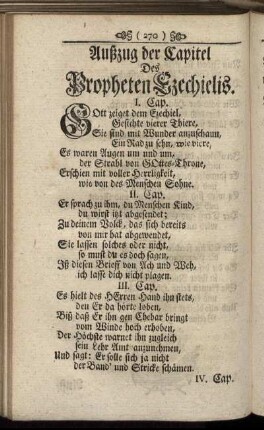 ( 270 )
Außzug der Capitel
Des
Propheten Ezechielis.
I. Cap.
GOtt zeiget dem Ezechiel,
Gesichte vierer Thiere,
Sie sind mit Wunder anzuschaun,
Ein Rad zu sehn, wie viere,
Es waren Augen um und um,
der Strahl von GOttes-Throne,
Erschien mit voller Herrligkeit,
wie von des Menschen Sohne.
II. Cap.
Er sprach zu ihm, du Menschen Kind,
du wirst itzt abgesendet;
Zu deinem Volck, das sich bereits
von mir hat abgewendet,
Sie lassen solches oder nicht,
so must du es doch sagen,
Ißt diesen Brieff von Ach und Weh,
ich lasse dich nicht zagen.
III. Cap.
Es hielt des HErren Hand ihn stets,
den Er da hörte loben,
Biß daß Er ihn gen Chebar bringt
vom Winde hoch erhoben,
Der Höchste warnet ihn zugleich
sein Lehr Amt anzunehmen,
Und sagt: Er solle sich ja nicht
der Band' und Stricke schämen.
IV. Cap.